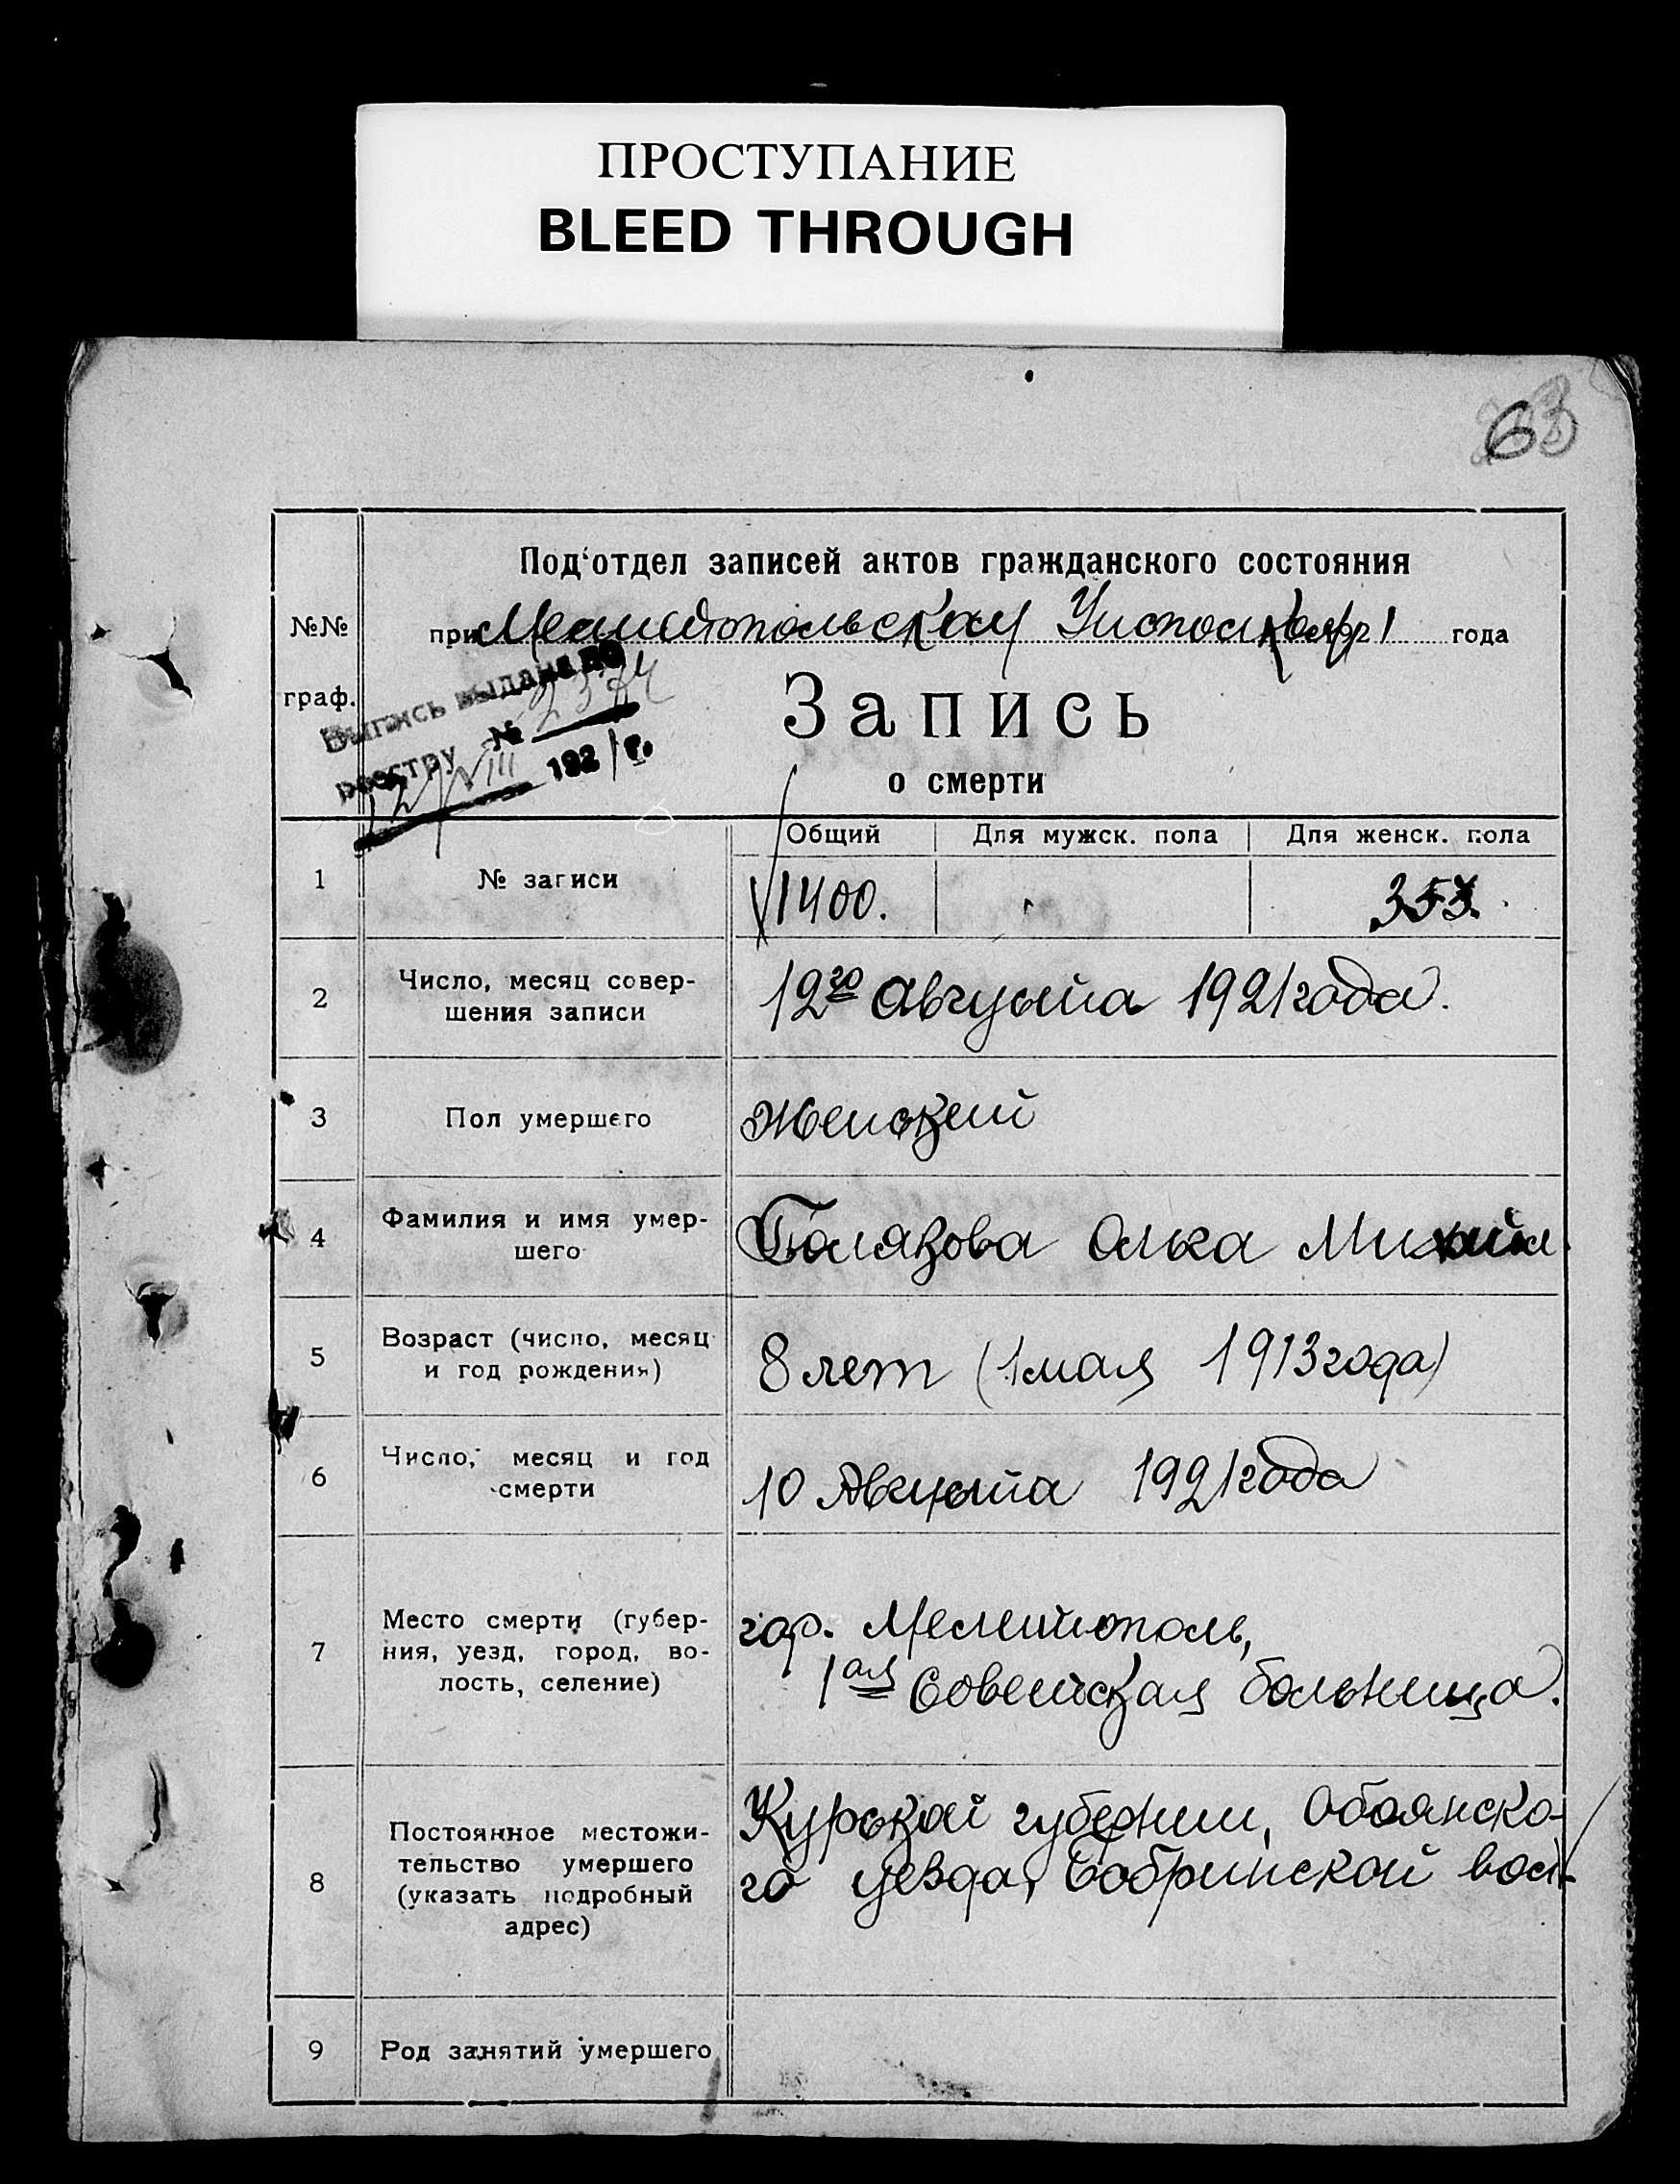 ПРОСТУПАНИЕ
BLEED THROUGH
63
Под'отдел записей актов гражданского состояния
№№
граф.
при Мелитопольском Исполкоме 1921 года
Выпись выдана по
реестру №
12/VIII 1921 г.
Запись
о смерти
Общий Для мужск. пола Для женск. пола
1 № записи 1400. 353.
2 Число, месяц совер-
шения записи
12го Августа 1921 года.
3 Пол умершего Женский
4 Фамилия и имя умер-
шего
Полякова Олька Михайл
5 Возраст (число, месяц
и год рождения)
8 лет (1 мая 1913 года)
6 Число, месяц и год
смерти
10 Августа 1921 года
7 Место смерти (губер-
ния, уезд, город, во-
лость, селение)
гор. Мелитополь,
1ая Советская больница.
8 Постоянное местожи-
тельство умершего
(указать подробный
адрес)
Курской губернии, Обоянско-
го уезда, Бобринской вол.
9 Род занятий умершего